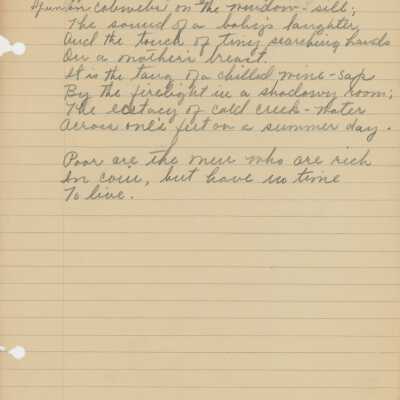 Spun on cobwebs on the window-sill;
The sound of a baby's laughter,
And the touch of tiny searching hands
On a mother's breast.
It is the tang of a chilled wine-sap
By the firelight in a shadowy room;
The ecstacy of cold creek-water
Across one's feet on a summer day.
Poor are the men who are rich
In coin, but have no time
To live.